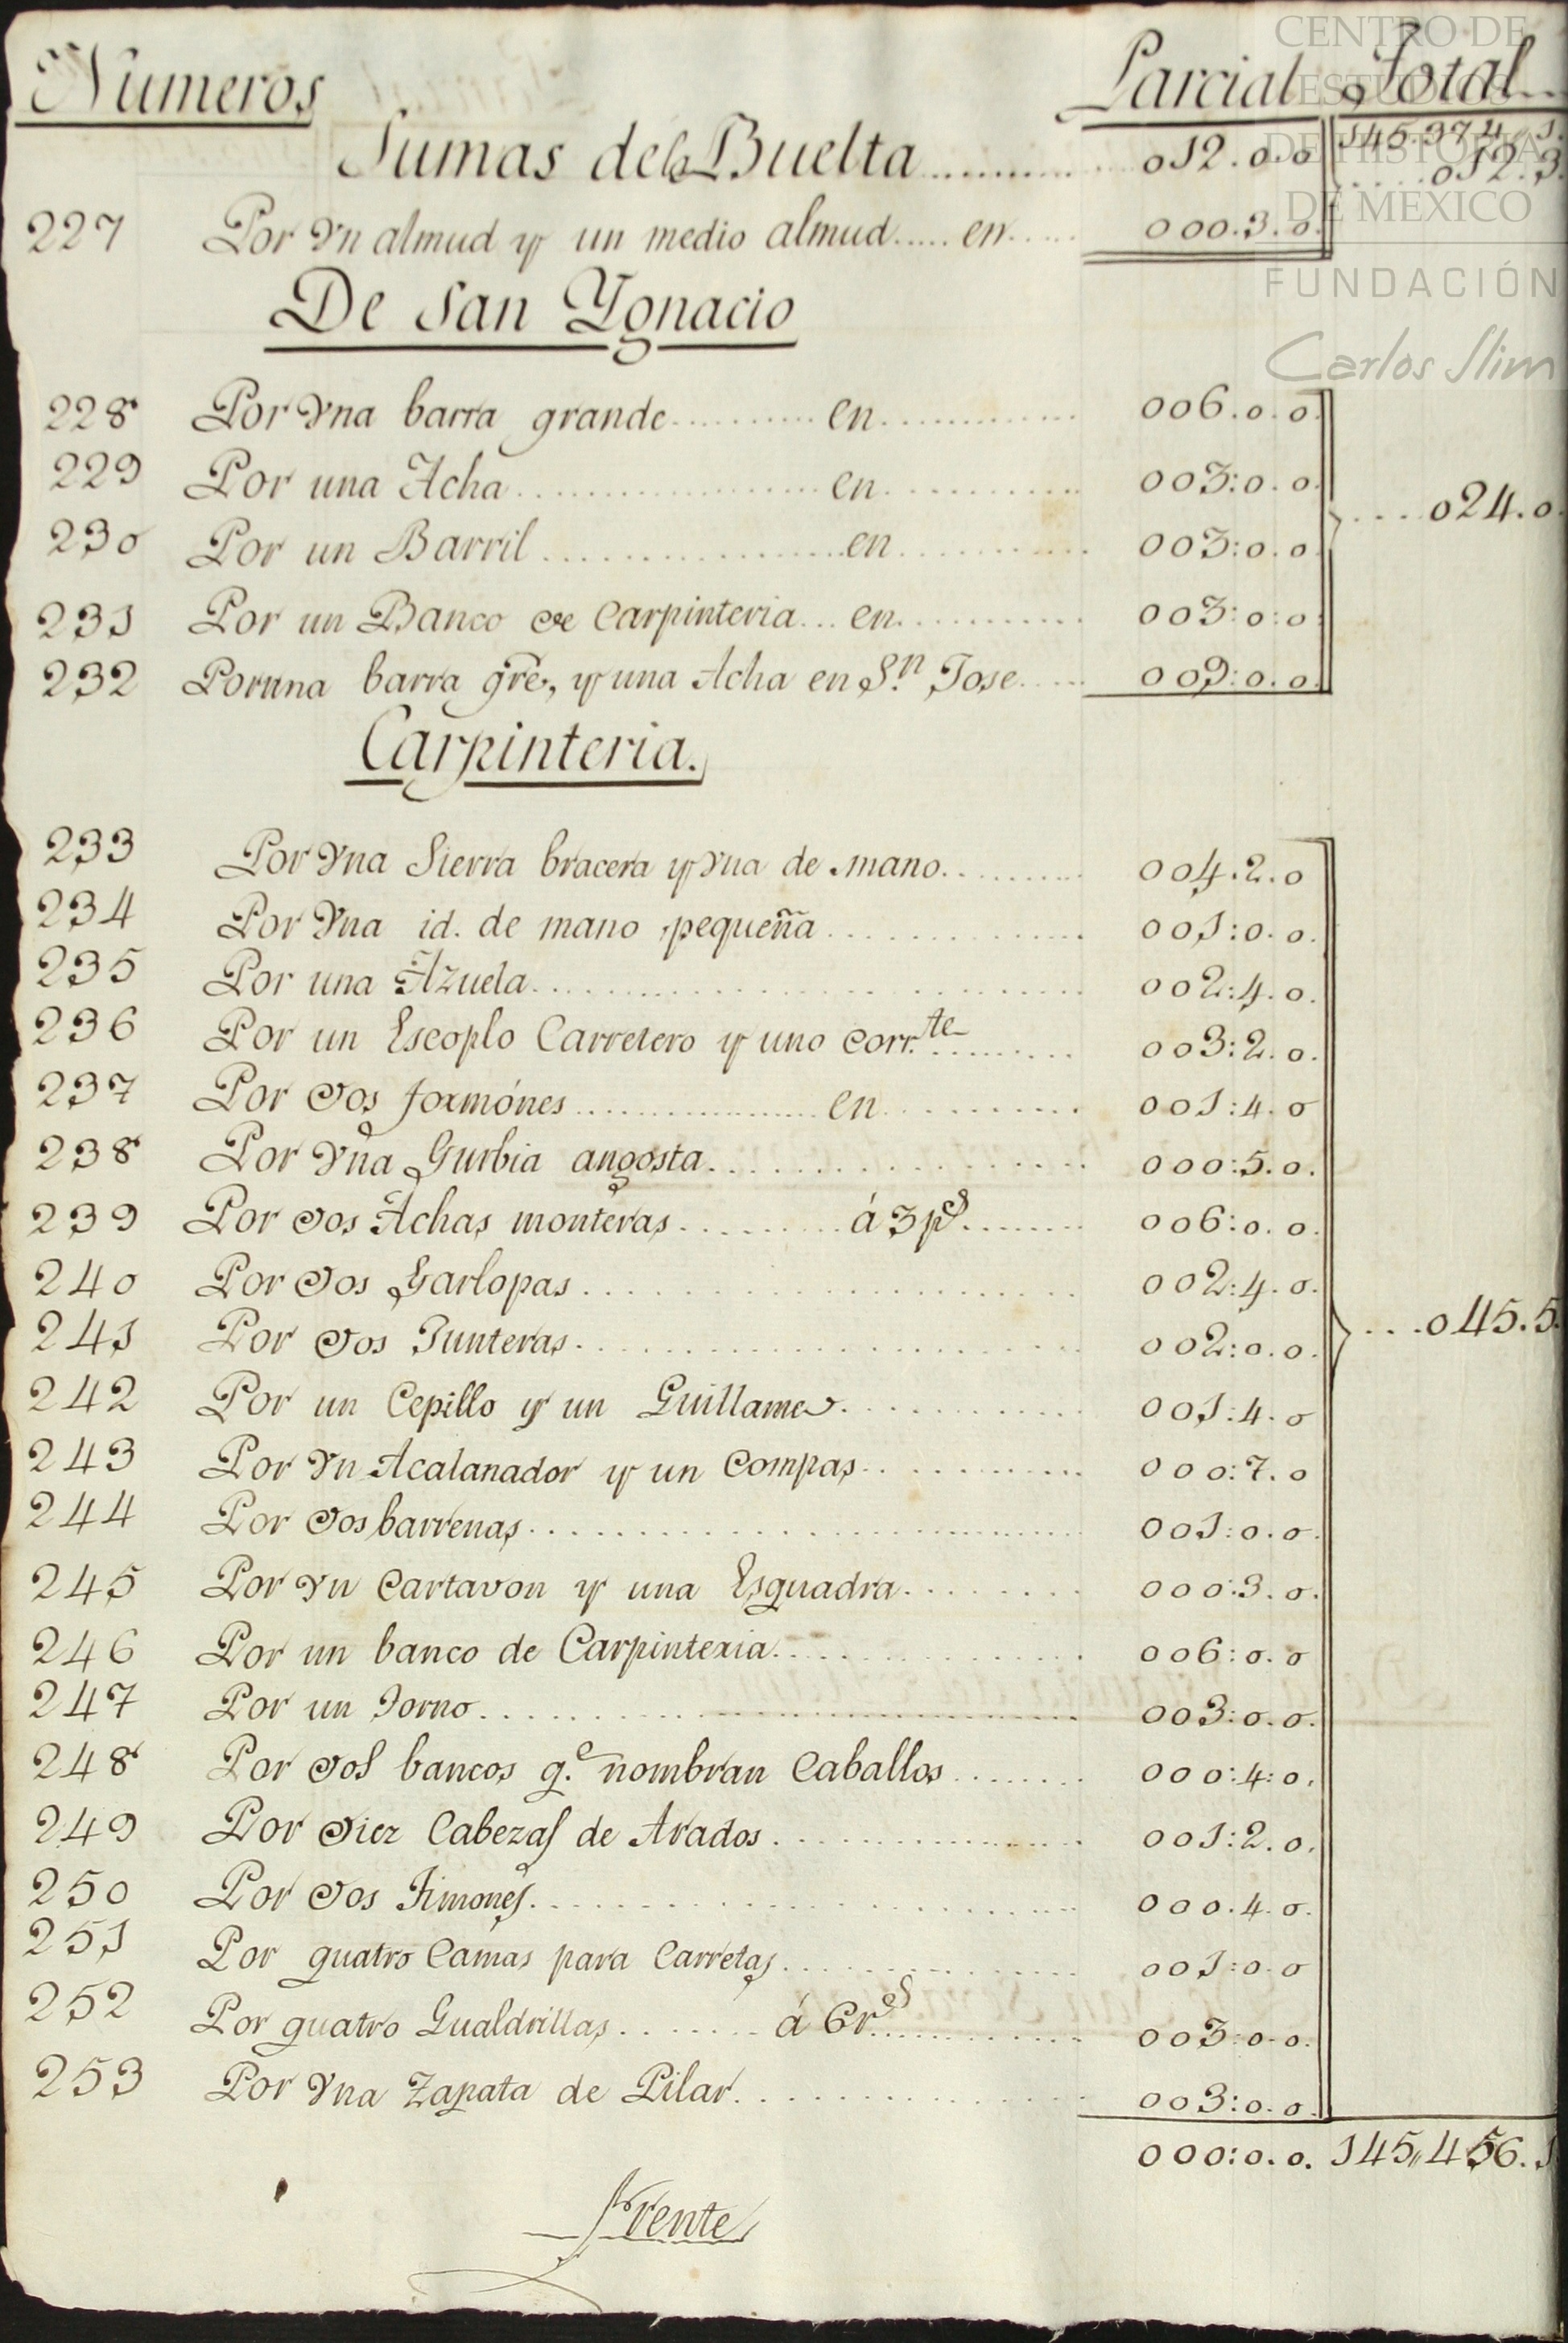 Numeros Parcial Total
Sumas de la Buelta 012.0.0 145.374.1
012.3.
227 Por Yn almud y un medio almud en 000.3.0.
De San Ygnacio
228 Por Yna barra grande en 006.0.0.
229 Por una Acha en 003:0.0.
230 Por un Barril en 003:0.0. 024.0.
231 Por un Banco de Carpinteria en 003:0:0:
232 Por una barra gre., y una Acha en S.n Jose 009:0.0.
Carpinteria.
233 Por Yna Sierra bracera y Yna de mano 004.2.0
234 Por Yna id. de mano pequeña 001:0.0.
235 Por una Azuela 002:4.0.
236 Por un Escoplo Carretero y uno corr.te 003:2.0.
237 Por dos formónes en 001:4.0
238 Por Yna Gurbia angosta 000:5.0.
239 Por dos Achas monteras á 3 ps 006:0.0.
240 Por dos Garlopas 002:4.0.
241 Por dos Junteras 002:0.0. 045.5.
242 Por un Cepillo y un Guillame 001:4.0
243 Por Yn Acalanador y un Compas 000:7.0
244 Por dos barrenas 001:0.0.
245 Por Yn Cartavon y una Esquadra 000:3.0.
246 Por un banco de Carpinteria 006:0.0
247 Por un Torno 003:0.0.
248 Por dos bancos q.e nombran Caballos 000:4:0.
249 Por diez Cabezas de Arados 001:2.0.
250 Por dos Timones 000.4.0.
251 Por quatro Camas para Carretas 001:0.0
252 Por quatro Gualdrillas á 6 rs 003:0.0.
253 Por Yna Zapata de Pilar 003:0.0.
000:0.0. 145,,456.1
Frente
CENTRO DE
ESTUDIOS
DE HISTORIA
DE MÉXICO
FUNDACIÓN
Carlos Slim